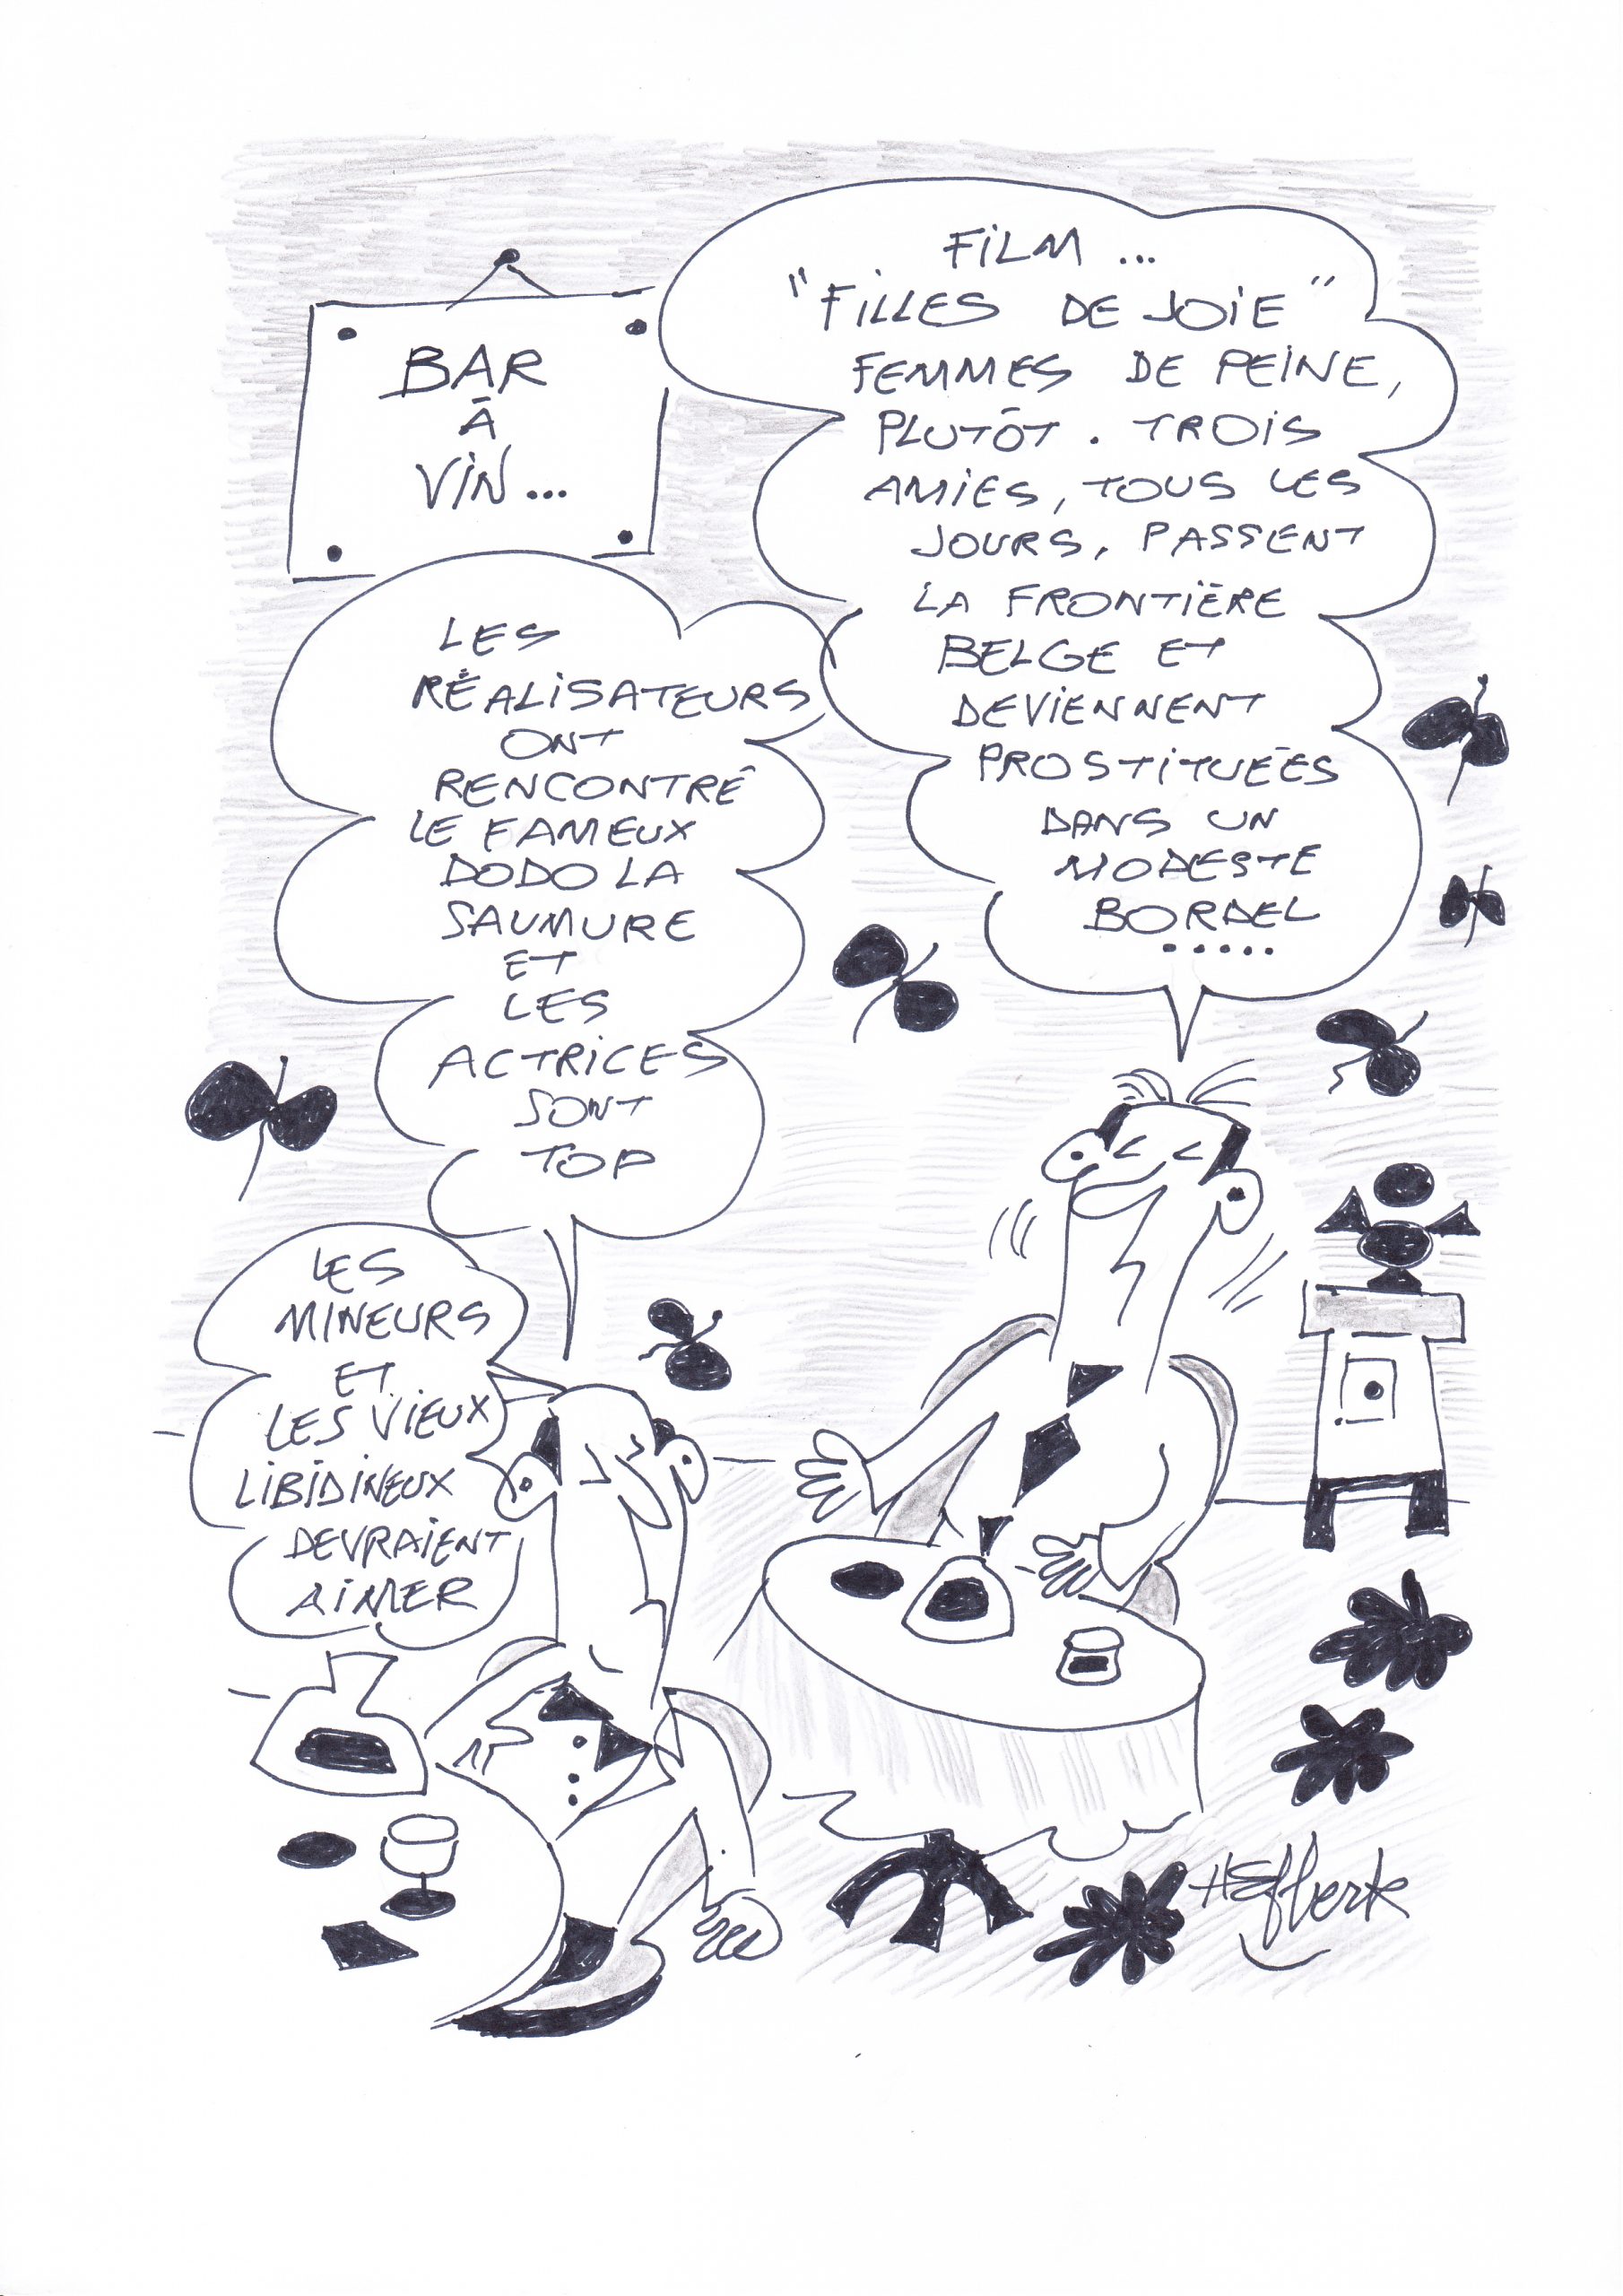 BAR
À
VIN...
FILM ...
"FILLES DE JOIE"
FEMMES DE PEINE,
PLUTÔT. TROIS
AMIES, TOUS LES
JOURS, PASSENT
LA FRONTIÈRE
BELGE ET
DEVIENNENT
PROSTITUÉES
DANS UN
MODESTE
BORDEL
.....
LES
RÉALISATEURS
ONT
RENCONTRÉ
LE FAMEUX
DODO LA
SAUMURE
ET
LES
ACTRICES
SONT
TOP
LES
MINEURS
ET
LES VIEUX
LIBIDINEUX
DEVRAIENT
AIMER